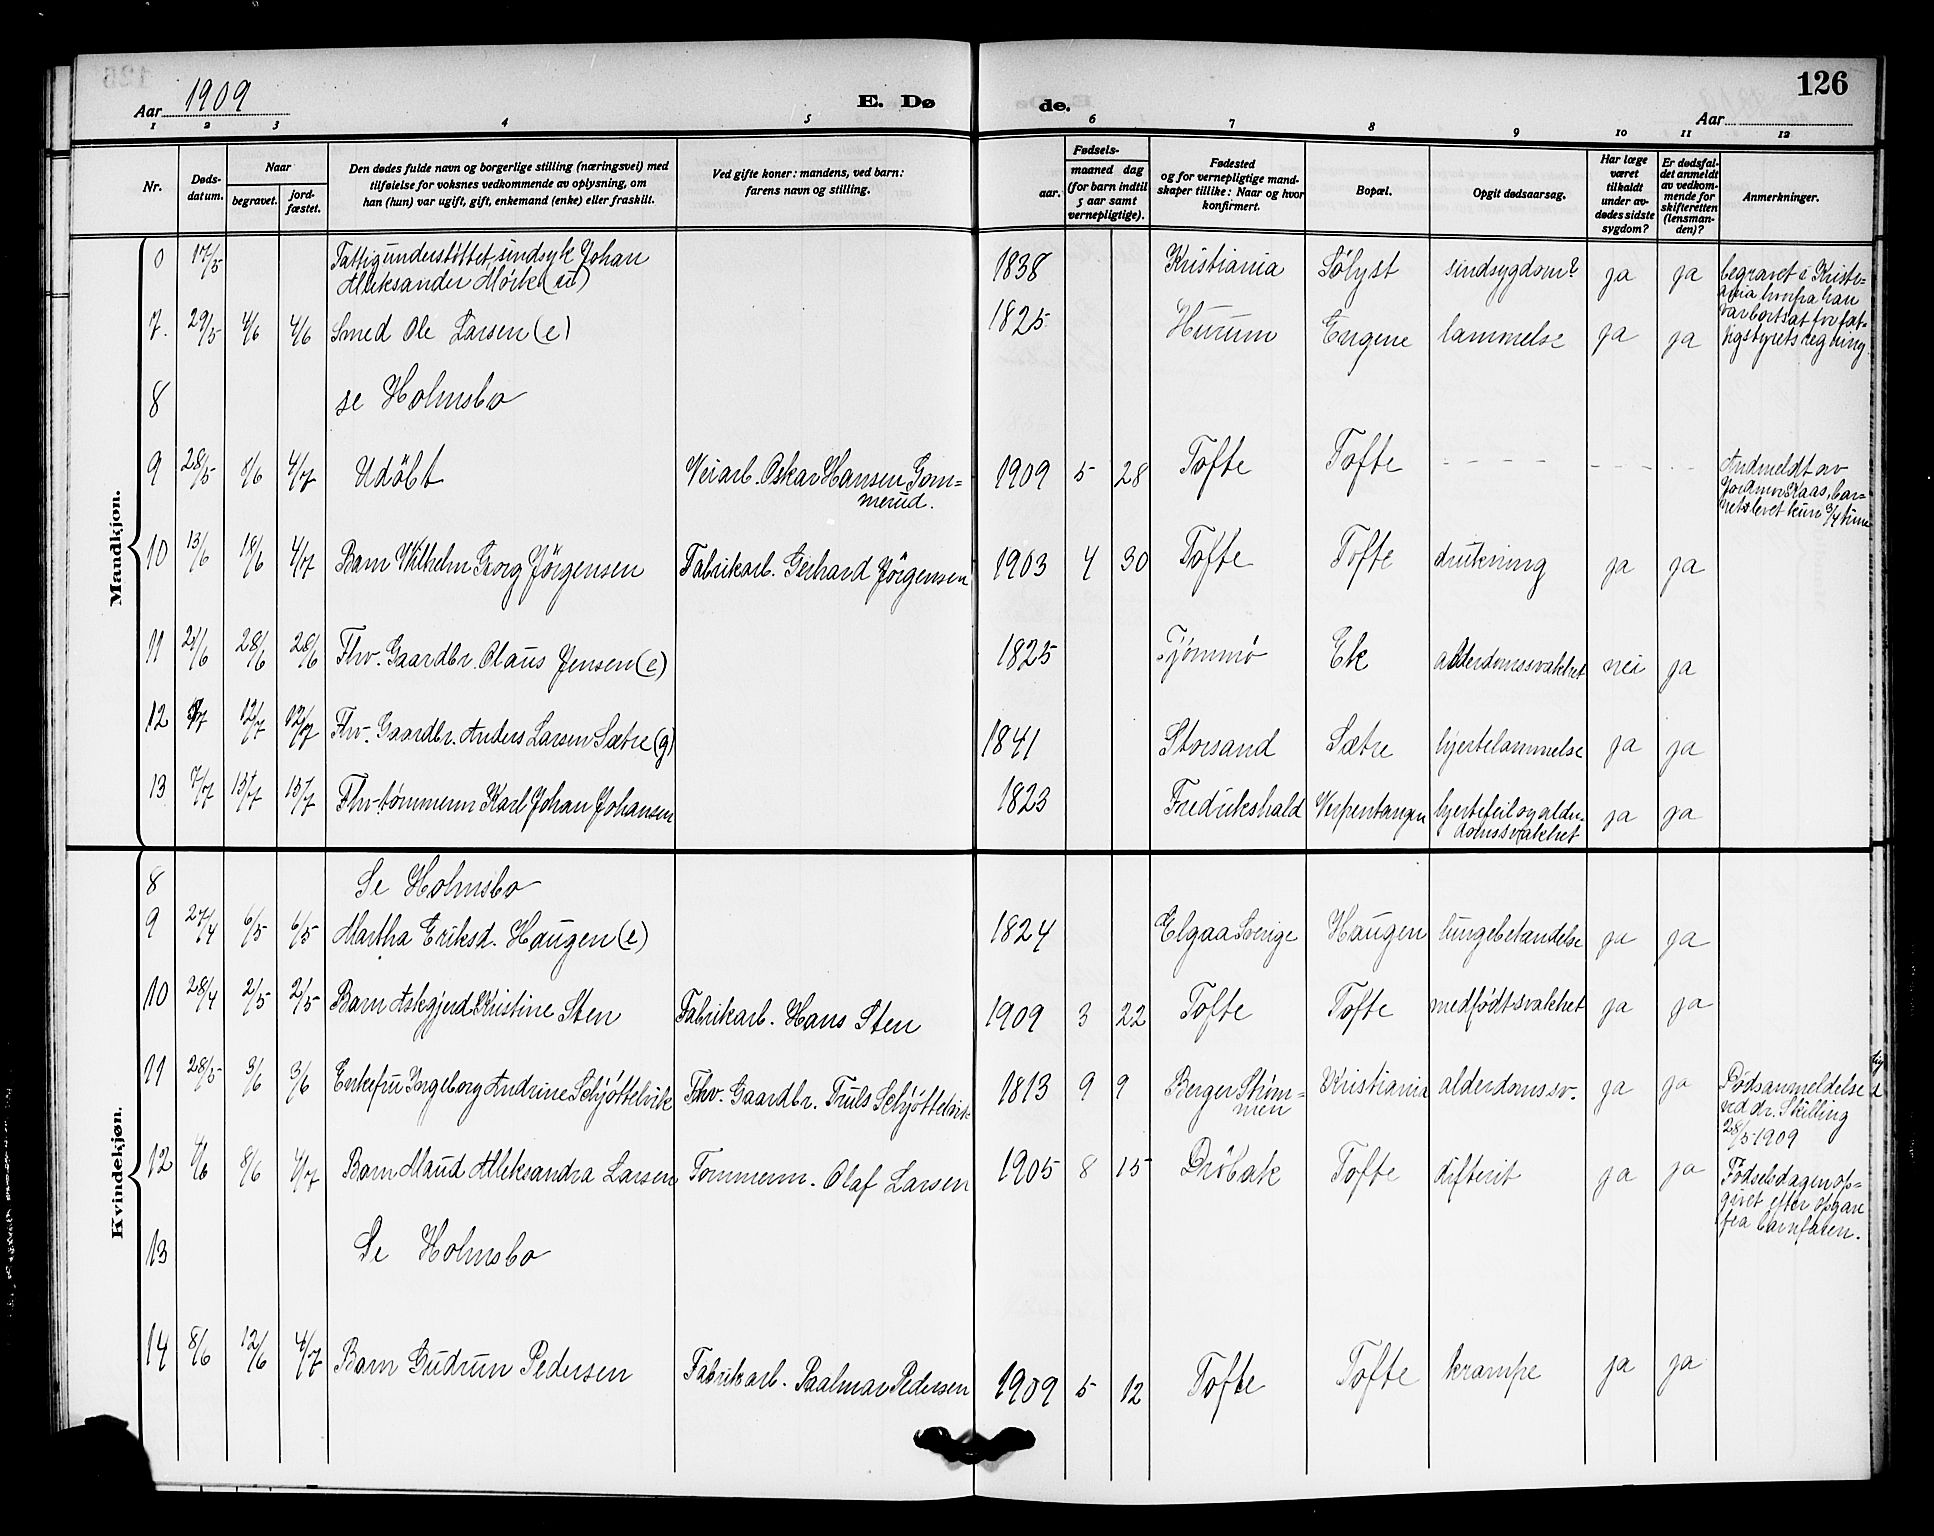 Aar 1909
E. Dø
de.
126
Aar
1 2 3 4 5 6 7 8 9 10 11 12
Nr.
Døds-
datum.
Naar
begravet.
jord-
fæstet.
Den dødes fulde navn og borgerlige stilling (næringsvei) med
tilføielse for voksnes vedkommende av oplysning, om
han (hun) var ugift, gift, enkemand (enke) eller fraskilt.
Ved gifte koner: mandens, ved barn:
farens navn og stilling.
Fødsels-
aar.
maaned dag
(for barn indtil
5 aar samt
vernepligtige).
Fødested
og for vernepligtige mand-
skaper tillike: Naar og hvor
konfirmert.
Bopæl.
Opgit dødsaarsag.
Har læge
været
tilkaldt
under av-
dødes sidste
sygdom?
Er dødsfal-
det anmeldt
av vedkom-
mende for
skifteretten
(lensman-
den)?
Anmerkninger.
Mandkjøn.
0 17/5 Fattigunderstøttet sindsyk Johan
Alleksander Mörk (u) 1838 Kristiania Sølyst sindsygdom? ja ja begravet i Kristi-
ania hvorfra han
var bortsat for fat-
tigstyrets regning
7. 29/5 4/6 4/6 Smed Ole Larsen (e) 1825 Hurum Engene lammelse ja ja
8 se Holmsbo
9 28/5 8/6 4/7 Udöbt Veiarb. Oskar Hansen Gom-
merud. 1909 5 28 Tofte Tofte - - - - - - - - Andmeldt av
Jordmor Kaas, bar-
net levet kun 3/4 time
10 13/6 18/6 4/7 Barn Wilhelm Georg Jörgensen Fabrikarb. Gerhard Jörgensen 1903 4 30 Tofte Tofte drukning ja ja
11 21/6 28/6 28/6 Fhv. Gaardbr. Olaus Jensen (e) 1825 Tjömmö Ek alderdomssvakhet nei ja
12 12/7 12/7 Fhv. Gaardbr. Anders Larsen Sætre (g) 1841 Storsand Sætre hjertelammelse ja ja
13 7/7 13/7 13/7 Fhv tömmerm Karl Johan Johansen 1823 Fredrikshald Verpentangen hjertefeil og alder-
domssvakhet ja ja
Kvindekjøn.
8 Se Holmsbo
9 27/4 6/5 6/5 Martha Eriksd. Haugen (e) 1824 Elgaa Sverige Haugen lungebetændelse ja ja
10 28/4 2/5 2/5 Barn Askgjerd Kristine Sten Fabrikarb. Hans Sten 1909 3 22 Tofte Tofte medfödt svakhet ja ja
11 28/5 3/6 3/6 Enkefru Ingeborg Andrine Schjöttelvik Fhv. Gaardbr. Truls Schjöttelvik 1813 9 9 Berger Ström-
men Kristiania alderdomssv. ja ja Dödsanmeldelse
ved dr. Skilling
28/5 1909
12 4/6 8/6 4/7 Barn Maud Alleksandra Larsen Tømmerm. Olaf Larsen 1905 8 15 Dröbak Tofte difterit ja ja Födselsdagen op-
givet efter opgave
fra barnfaren.
13 Se Holmsbo
14 8/6 12/6 4/7 Barn Gudrun Pedersen Fabrikarb. Paalmar Pedersen 1909 5 12 Tofte Tofte krampe ja ja